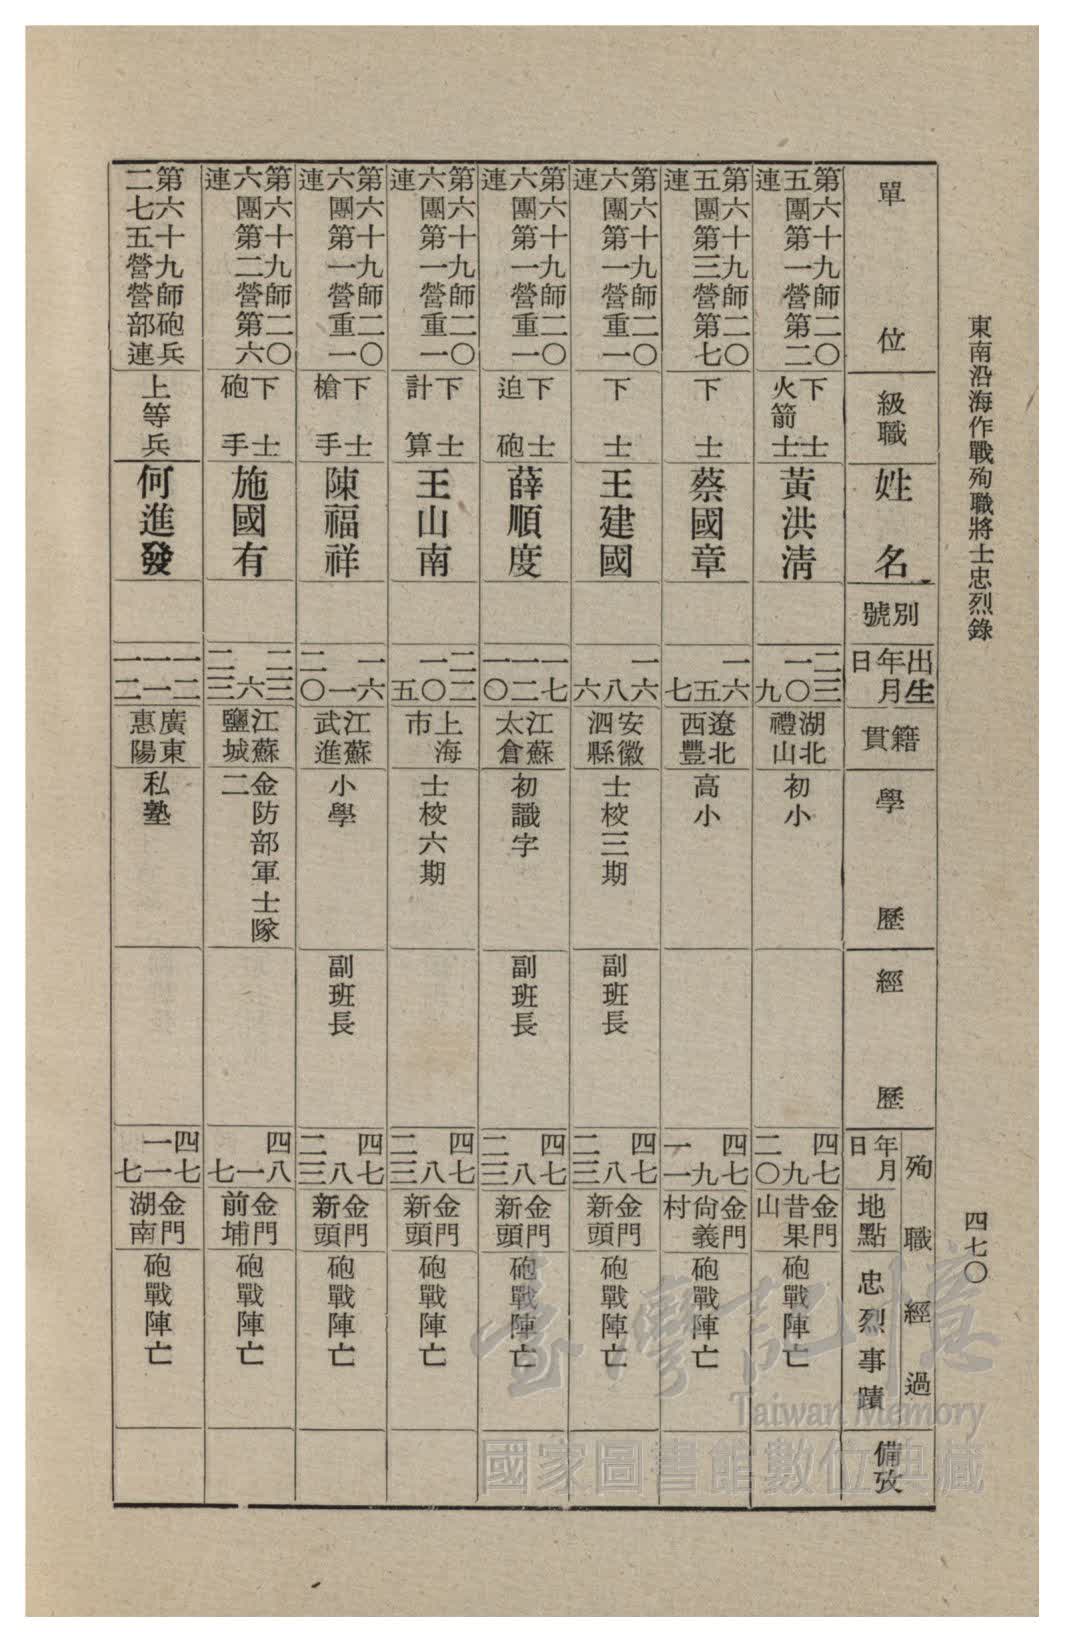 東南沿海作戰殉職將士忠烈錄
四七〇
單位
級職
姓名
別號
出生年月日
籍貫
學歷
經歷
殉職經過
年月日
地點
忠烈事蹟
備攷
第六十九師二〇
五團第一營第二
連
下士
火箭士
黃洪清
二三
一〇
九
湖北
禮山
初小
四七
九
二〇
金門
昔果
山
砲戰陣亡
第六十九師二〇
五團第三營第七
連
下士
蔡國章
一六
五
七
遼北
西豐
高小
四七
九
一一
金門
尙義
村
砲戰陣亡
第六十九師二〇
六團第一營重一
連
下士
王建國
一六
八
六
安徽
泗縣
士校三期
副班長
四七
八
二三
金門
新頭
砲戰陣亡
第六十九師二〇
六團第一營重一
連
下士
迫砲
薛順度
一七
一二
一〇
江蘇
太倉
初識字
副班長
四七
八
二三
金門
新頭
砲戰陣亡
第六十九師二〇
六團第一營重一
連
下士
計算
王山南
二二
一〇
五
上海
市
士校六期
四七
八
二三
金門
新頭
砲戰陣亡
第六十九師二〇
六團第一營重一
連
下士
槍手
陳福祥
一六
一
二〇
江蘇
武進
小學
副班長
四七
八
二三
金門
新頭
砲戰陣亡
第六十九師二〇
六團第二營第六
連
下士
砲手
施國有
二三
六
二三
江蘇
鹽城
金防部軍士隊
二
四八
一
七
金門
前埔
砲戰陣亡
第六十九師砲兵
二七五營營部連
上等兵
何進發
一二
一一
一二
廣東
惠陽
私塾
四七
一一
七
金門
湖南
砲戰陣亡
臺灣記憶
Taiwan Memory
國家圖書館數位典藏